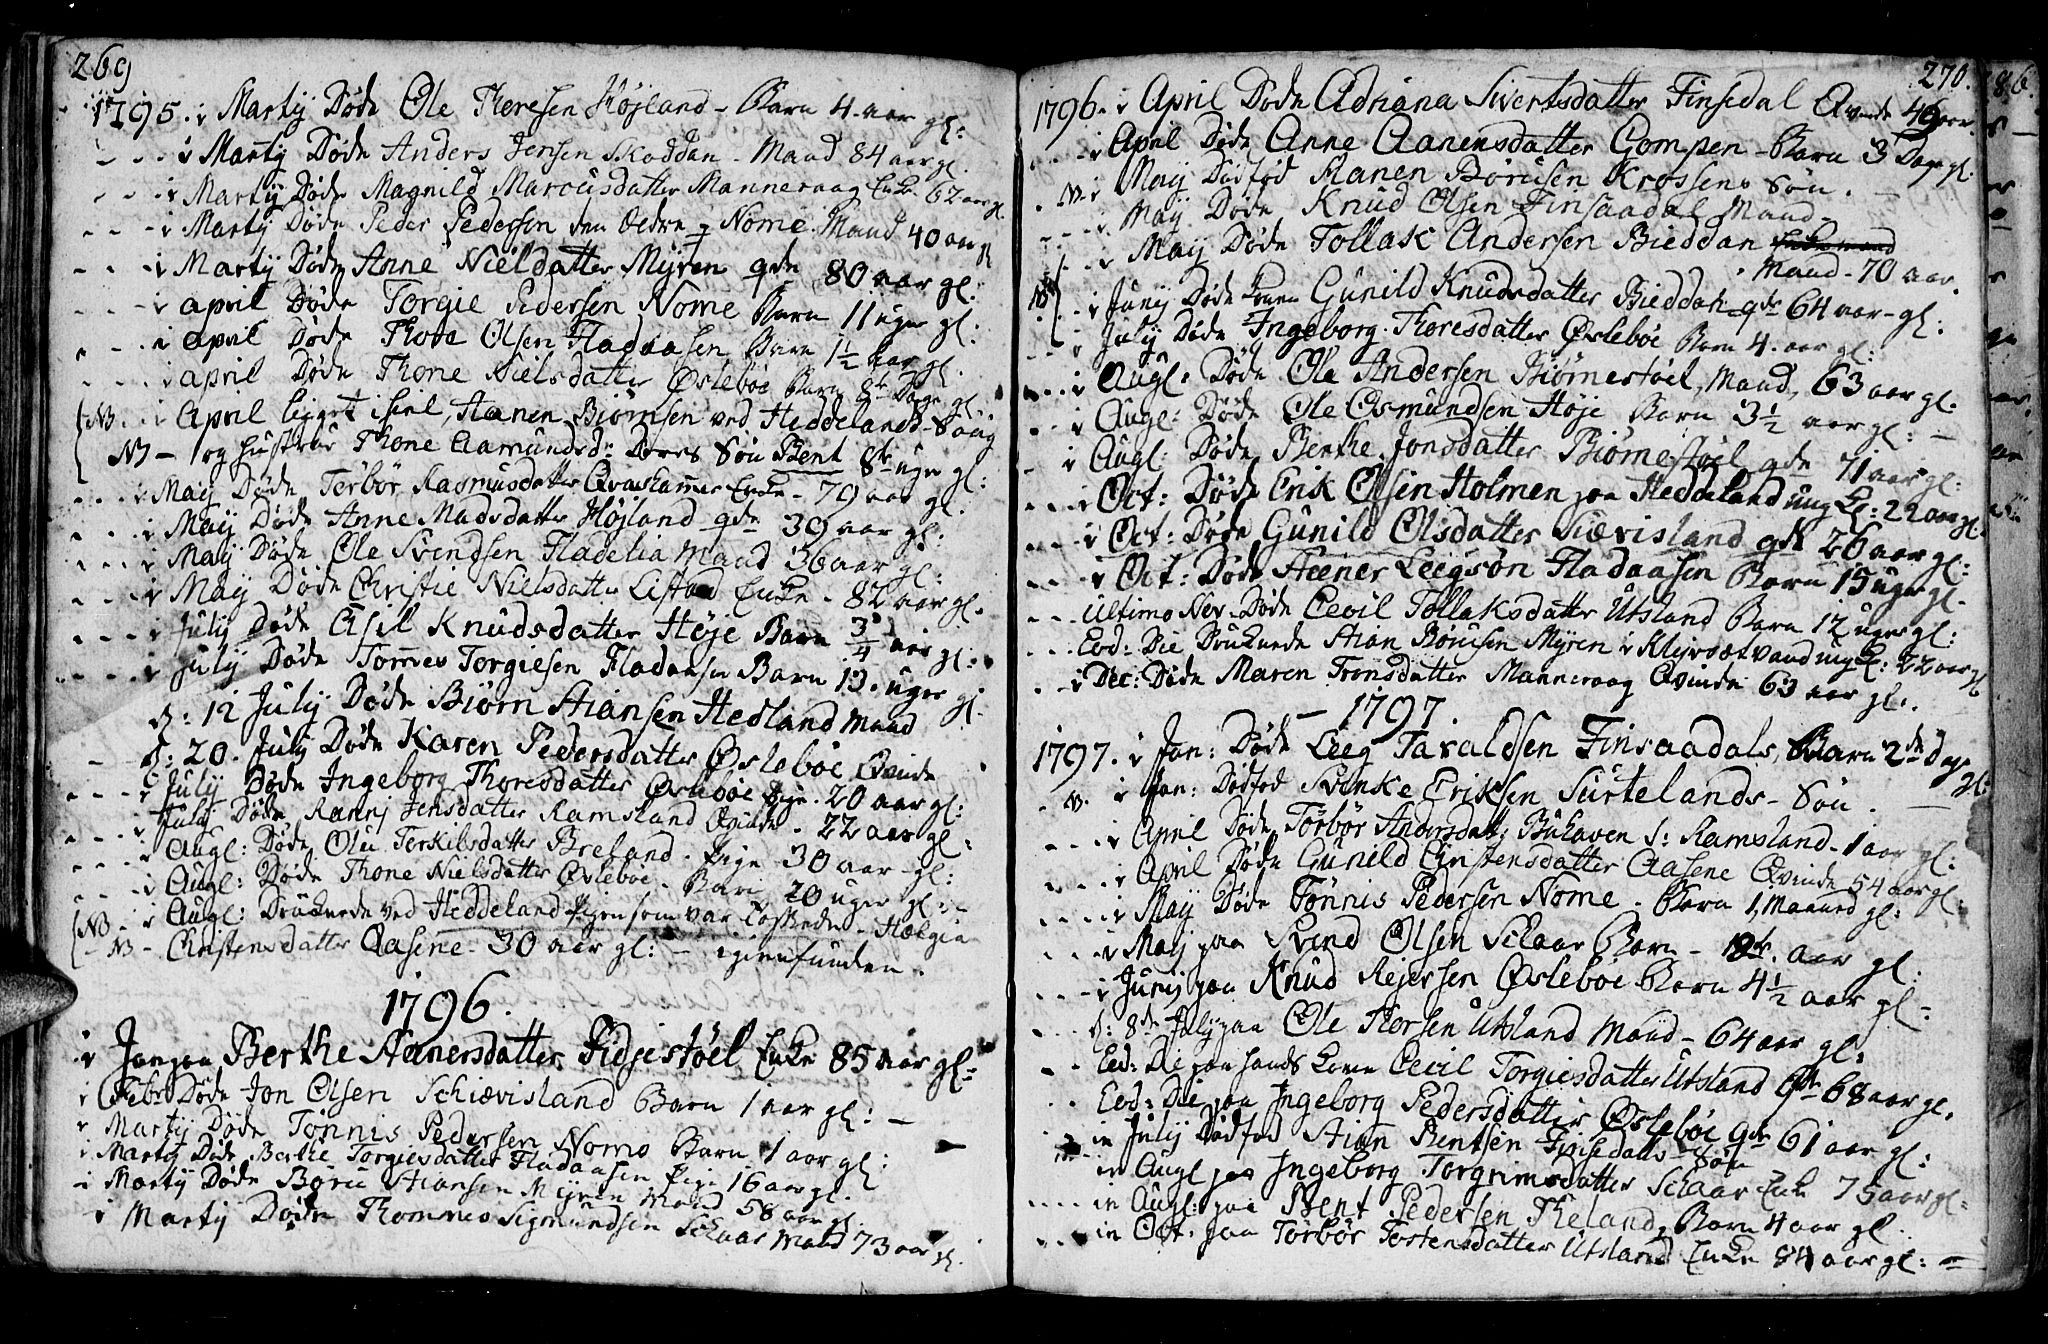 269
1795. i Martij Døde Ole Thoresen Højland - Barn 4. aar gl:
- - - i Martij Døde Anders Jensen Skoddan - Mand 84 aar gl.
- - - i Martij Døde Magnild Marcusdatter Manneraag Enke 62 aar gl.
- - - i Martij Døde Peder Pedersen den Oeldre - Nome Mand 40 aar gl
- - - i Martij Døde Anne Nielsdatter Myren gde 80 aar gl:
- - - i april Døde Torgie Pedersen Nome Barn 11 uger gl:
- - - i april Døde Thore Olsen Fladaasen Barn 1½ aar gl.
- - - i april Døde Thone Nielsdatter Øslebøe Barn 8te Dage gl
NB. i April ligget ihiel, Hanen Biørnsen ved Heddelands-Saug
NB - og hustrue Thone Aamundsd: Deres Søn Bent 8te uger gl:
- - - i Maij Døde Torbør Rasmusdatter Enke - 79 aar gl.
- - - i Maij Døde Anne Madsdatter Højland gde 39 aar gl:
- - - i Maij Døde Ole Svendsen Fladelia Mand 36 aar gl:
- - - i Maij Døde Christie Nielsdatter Enke - 82 aar gl.
- - - i Julij Døde Asil Knudsdatter Høje Barn ¾ aar gl:
- - - i Julij Døde Tomes Torgiesen Fladaasen Barn 13. uger gl.
d: 12 Julij Døde Biørn Aiansen Hedland Mand
- d: 20. Julij Døde Karen Pedersdatter Øslebøe Qvinde
- - - i Julij Døde Ingeborg Thoresdatter Øslebøe Pige. 20 aar gl:
- - - i Julij Døde Ranej Jensdatter Ramsland Qvinde - 22 aar gl.
- - - i Augl: Døde Olu Terkilsdatter Breland. Pige 30 aar gl:
- - - i Augl: Døde Thone Nielsdatter Øslebøe. Barn 20 uger gl:-
NB - i Augl: Druknede ved Heddeland Pigen som var Helgia
- NB - Christensdatter Aasene - 30 aar gl: - igienfunden.
1796.
i Jan paa Berthe Aanersdatter Fidjestøel Enke 85 aar gl:
i Febr Døde Jon Olsen Schiævisland Barn 1 aar gl: -
i Martij Døde Tønnis Pedersen Nomo Barn 1 aar gl:
i Martij Døde Berthe Torgiesdatter Fladaasen Pige 16 aar gl.
i Martij Døde Børu Aiansen Myren Mand 58 aar gl.
i Martij Døde Thommes Sigmundsen Schaar Mand 73 aar gl.
270.
1796. i April Døde Adriana Sivertsdatter Finsedal Qvinde 46 aar.
- - - i April Døde Anne Aanensdatter Gompen - Barn 3 Dage gl.
. N. i Maij Dødfød Hanen Børusen Krossens Søn. -
- - - i Maij Døde Knud Olsen Finsaadal Mand -
- - - i Maij Døde Tollak Andersen Bieddan
Mand - 70 aar.
NB - - i Junij Døde Konen Gunild Knudsdatter Bieddan gde 64 aar - gl:
- - - i Julij Døde Ingeborg Thoresdatter Øslebøe Barn 4. aar gl:
- - - i Augl. Døde Ole Andersen Biørnestøel, Mand, 63 aar gl.
- - - i Augl: Døde Ole Osmundsen Høje Barn 3½ aar gl: -
- i Augl: Døde Berthe Jonsdatter Biørnestøel gde 71 aar gl:
- - - i Oct: Døde Erik Olsen Holmen paa Heddeland ung K: 22 aar gl.
- - - i Oct: Døde Gunild Olsdatter Siævisland gde 26 aar gl:
- - - i Oct: Døde Aaener Leegsøn Fladaasen Barn 15 uger gl.
- - - Ultimo Nov. Døde Cecil Tollaksdatter Utsland Barn 12 uger gl:
- - - Eod: Die Druknede Aian Børusen Myren i Klejvsætvand ung K: 22 aar gl
- - i Dec: Døde Maren Tronsdatter Manneraag Qvinde 63 aar gl.
- 1797.
1797. i Jan: Døde Leeg Taraldsen Finsaadals, Barn 2de Dage gl:
- N. i Jan: Dødfød Svenke Eriksen Surtelands - Søn. -
- - - i April Døde Torbør Andersdatt: Buhaven i: Ramsland - 1 aar gl:
- - - i April Døde Gunild Christensdatter Aasene Qvinde 54 aar gl:
- - - i Maij Døde Tønnis Pedersen Nome. Barn 1, Maaned gl:
- - - i Maij paa Svend Olsen Schaar Barn - aar gl:
- - - i Junij paa Knud Rejersen Øslebøe Barn 4½ aar gl:
- - - d: 8de Julij paa Ole Thorsen Utsland Mand - 64 aar gl:
- - Eod: Die paa hands Kone Cecil Torgiesdatter Utsland gde 68 aar gl.
- - Eod: Die paa Ingeborg Pedersdatter Øslebøe gde 61 aar gl:
in Julij Dødfød Aian Bentsen Finsedals Søn
in Augl paa Ingeborg Torgrimsdatter Schaar Enke 75 aar gl:
- - - in Augl: paa Bent Pedersen Theland, Barn 4 aar gl.
- - - in Oct. paa Torbør Tostensdatter Utsland Enke 84 aar gl: -